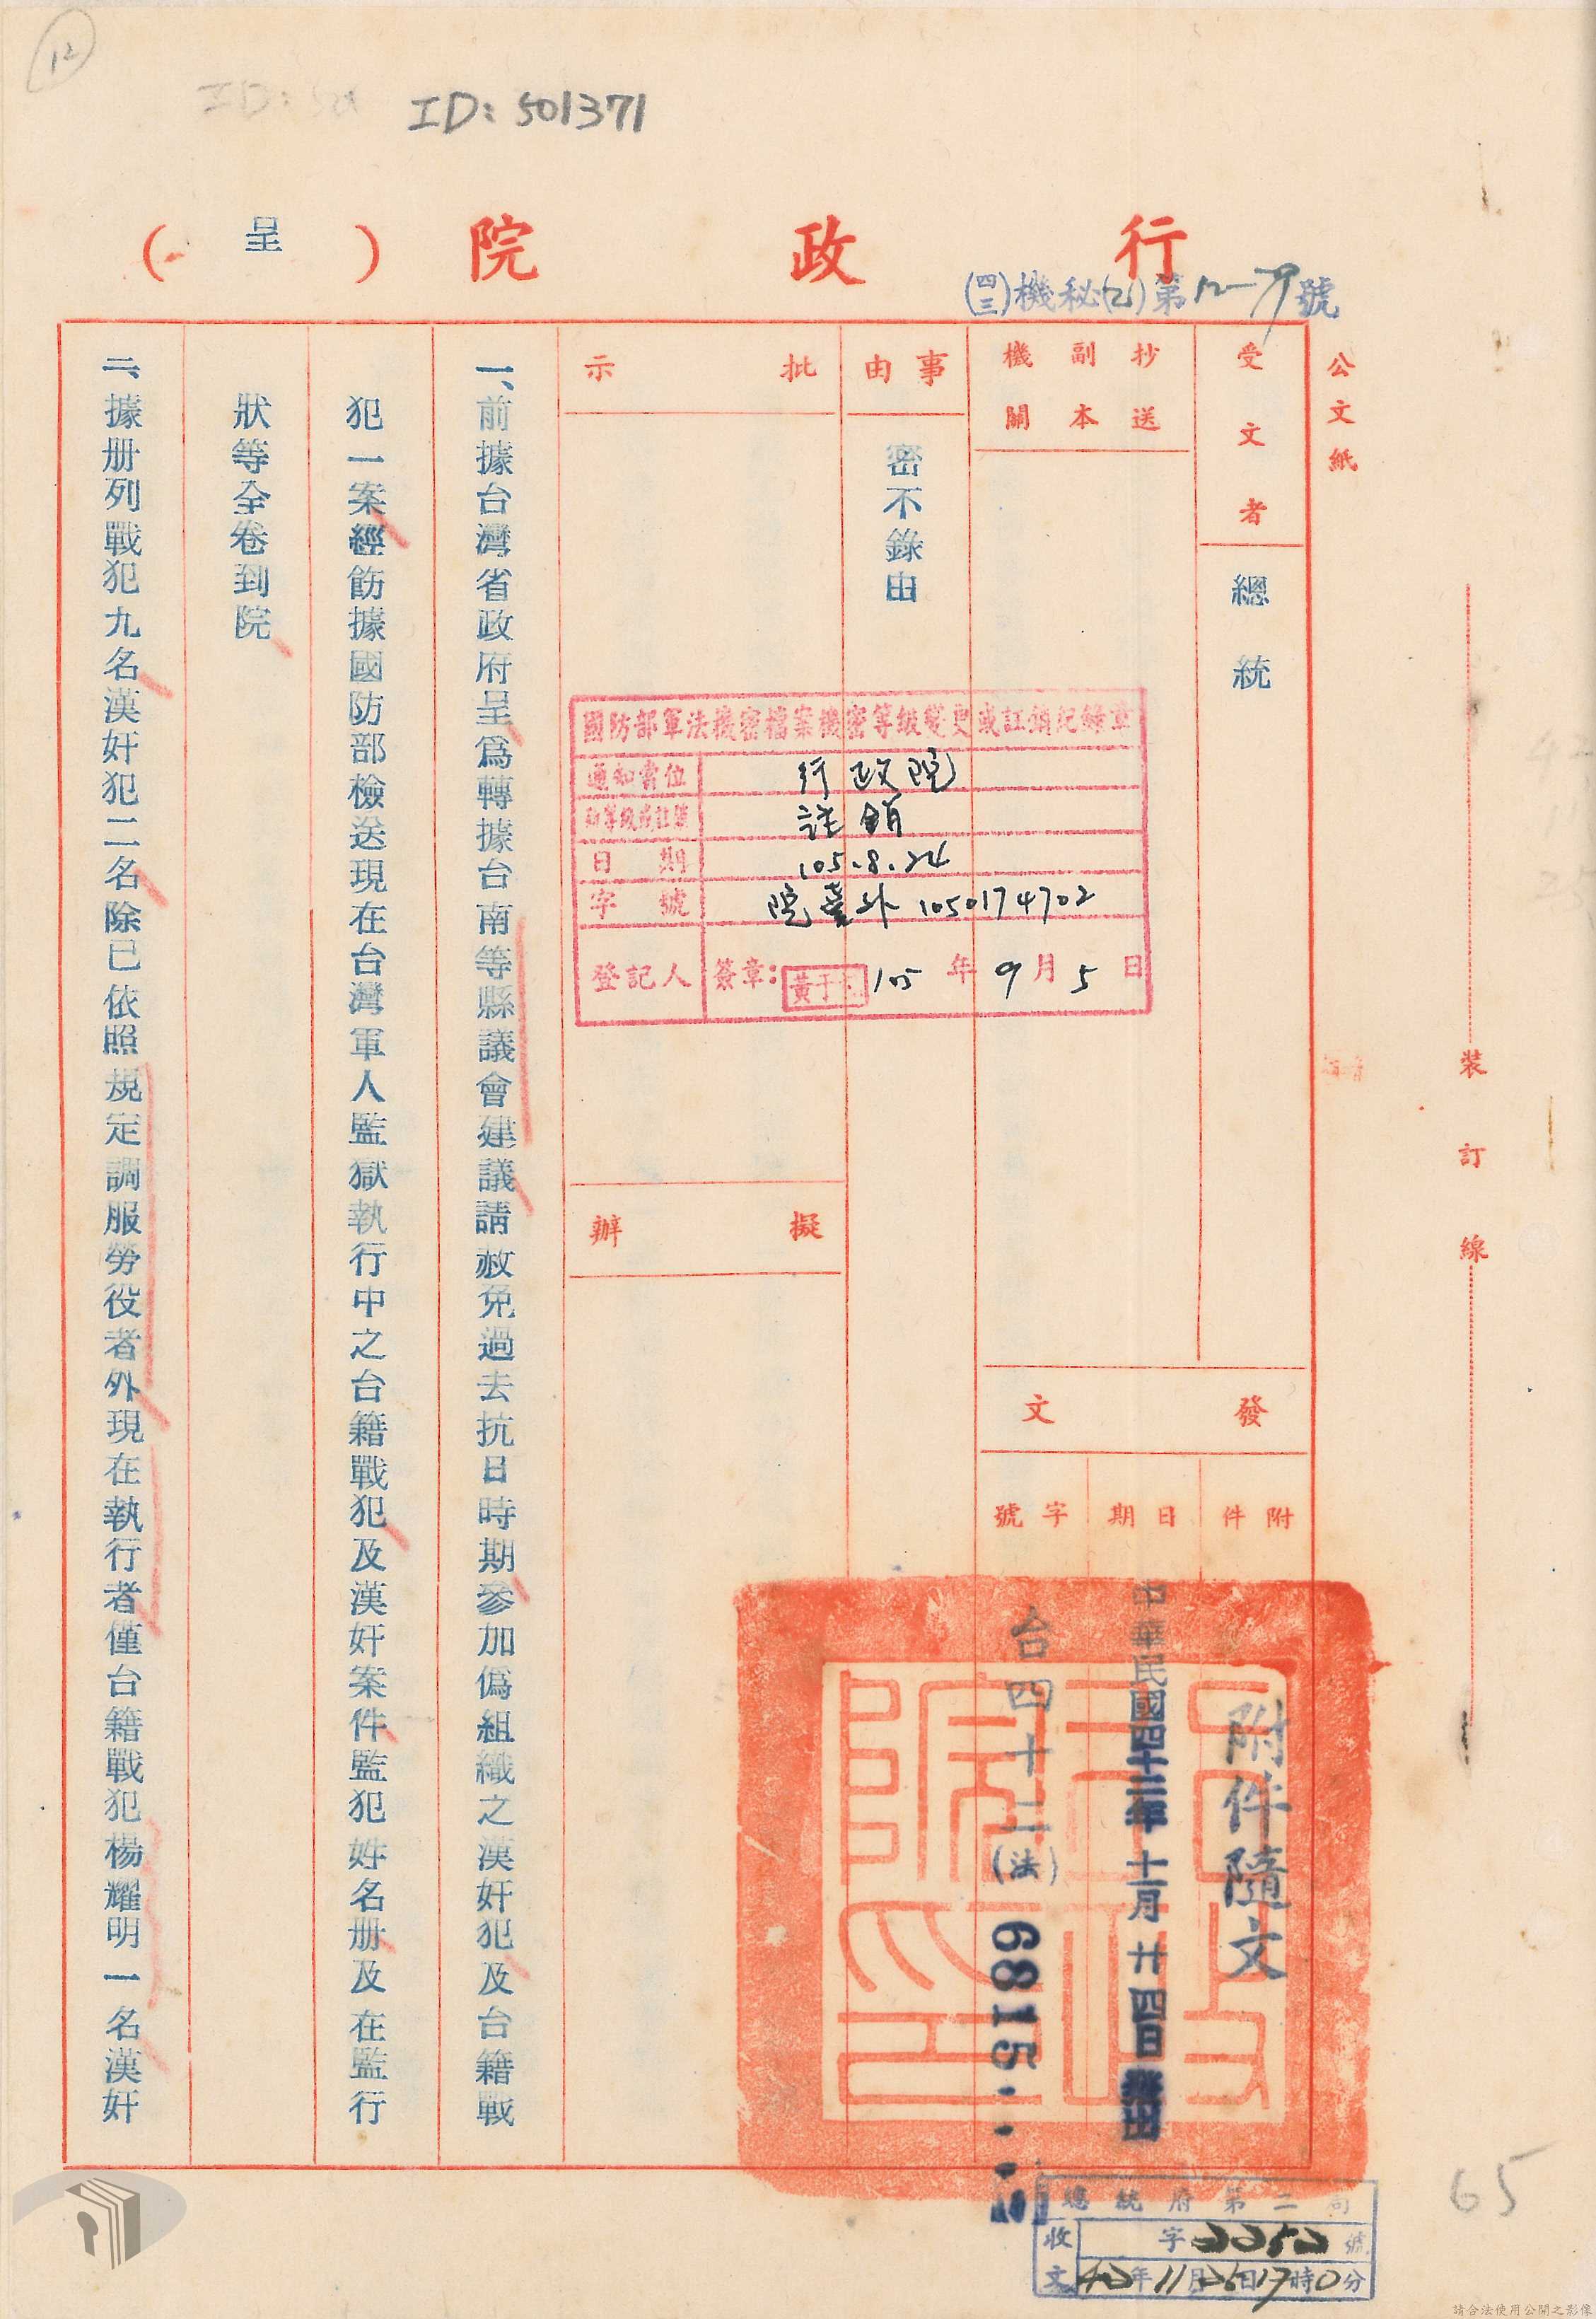 12
ID: 501371
行政院
(呈)
公文紙
受文者
總統
抄送副本機關
事由
密不錄由
批示
擬辦
發文
附件
附件隨文
日期
中華民國四十二年十一月廿四日發出
字號
台四十二(法)6815
國防部軍法機密檔案機密等級變更或註銷紀錄章
通知單位
行政院
註銷
日期
105.8.24
字號
院臺外1050174702
登記人
簽章:
105年9月5日
一、前據台灣省政府呈爲轉據台南等縣議會建議請赦免過去抗日時期參加僞組織之漢奸犯及台籍戰
犯一案經飭據國防部檢送現在台灣軍人監獄執行中之台籍戰犯及漢奸案件監犯姓名册及在監行
狀等全卷到院
二、據册列戰犯九名漢奸犯二名除已依照規定調服勞役者外現在執行者僅台籍戰犯楊耀明一名漢奸
裝訂線
總統府第二局
收文
字
號
42年11月26日17時0分
65
請合法使用公開之影像